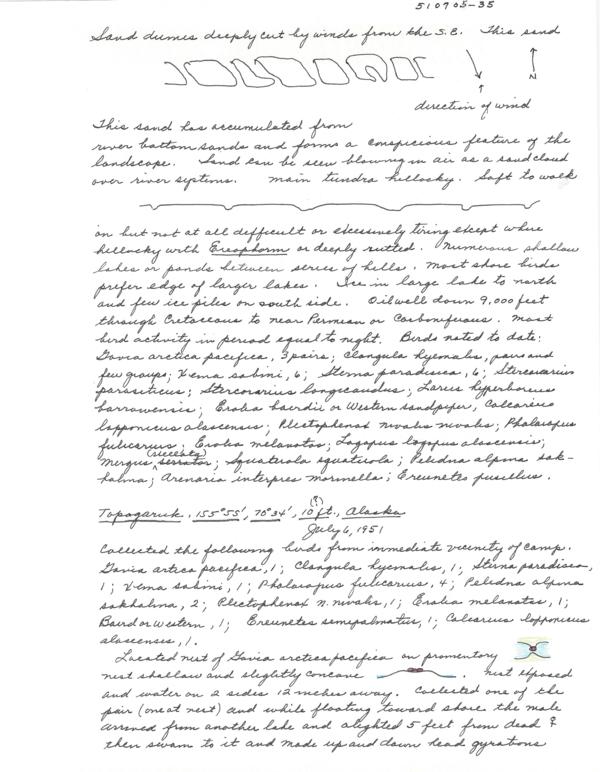 510705-35
Sand dunes deeply cut by winds from the S.E. This sand
N
direction of wind
This sand has accumulated from
river bottom sands and forms a conspicious feature of the
landscape. Sand can be seen blowing in air as a sand cloud
over river systems. Main tundra hillocky. Soft to walk
on but not at all difficult or excessively tiring except where
hillocky with Ereophorm or deeply rutted. Numerous shallow
lakes or ponds between series of hills. Most shore birds
prefer edge of larger lakes. Ice in large lake to north
and few ice piles on south side. Oil well down 9,000 feet
through Cretaceous to near Permian or Carboniferous. Most
bird activity in period equal to night. Birds noted to date:
Gavia arctica pacifica, 3 pairs; Clangula hyemalis, pairs and
few groups; Xema sabini, 6; Sterna paradisaea, 6; Stercorarius
parasiticus; Stercorarius longicaudus; Larus hyperboreus
barrowensis; Erolia bairdii or Western sandpiper, Calcarius
lapponicus alascensis; Plectophenax nivalis nivalis; Phalaropus
fulicarius; Erolia melanotos; Lagopus lagopus alascensis;
Mergus serrator; Squatarola squatarola; Pelidna alpina sak-
halina; Arenaria interpres morinella; Ereunetes pusillus.
Topagaruk, 155°55', 70°34', 10 ft., Alaska
(?)
July 6, 1951
Collected the following birds from immediate vicinity of camp.
Gavia artica pacifica, 1; Clangula hyemalis, 1; Sterna paradisaea,
1; Xema sabini, 1; Phalaropus fulicarius, 4; Pelidna alpina
sakhalina, 2; Plectophenax n. nivalis, 1; Erolia melanotos, 1;
Baird or Western, 1; Ereunetes semipalmatus, 1; Calcarius lapponicus
alascensis, 1.
Located nest of Gavia arctica pacifica on promentory
nest shallow and slightly concave. nest exposed
and water on 2 sides 12 inches away. Collected one of the
pair (one at nest) and while floating toward shore the male
arrived from another lake and alighted 5 feet from dead ♀
then swam to it and made up and down head gyrations